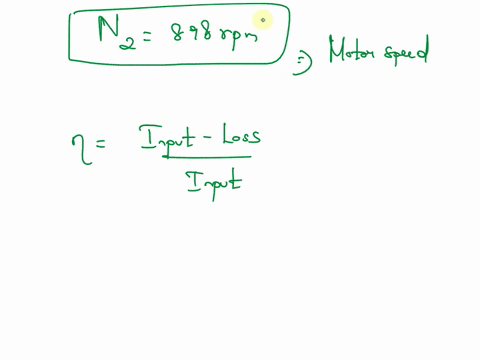 N₂ = 898 rpm
⇒ Motor speed
η = Input - Loss
Input